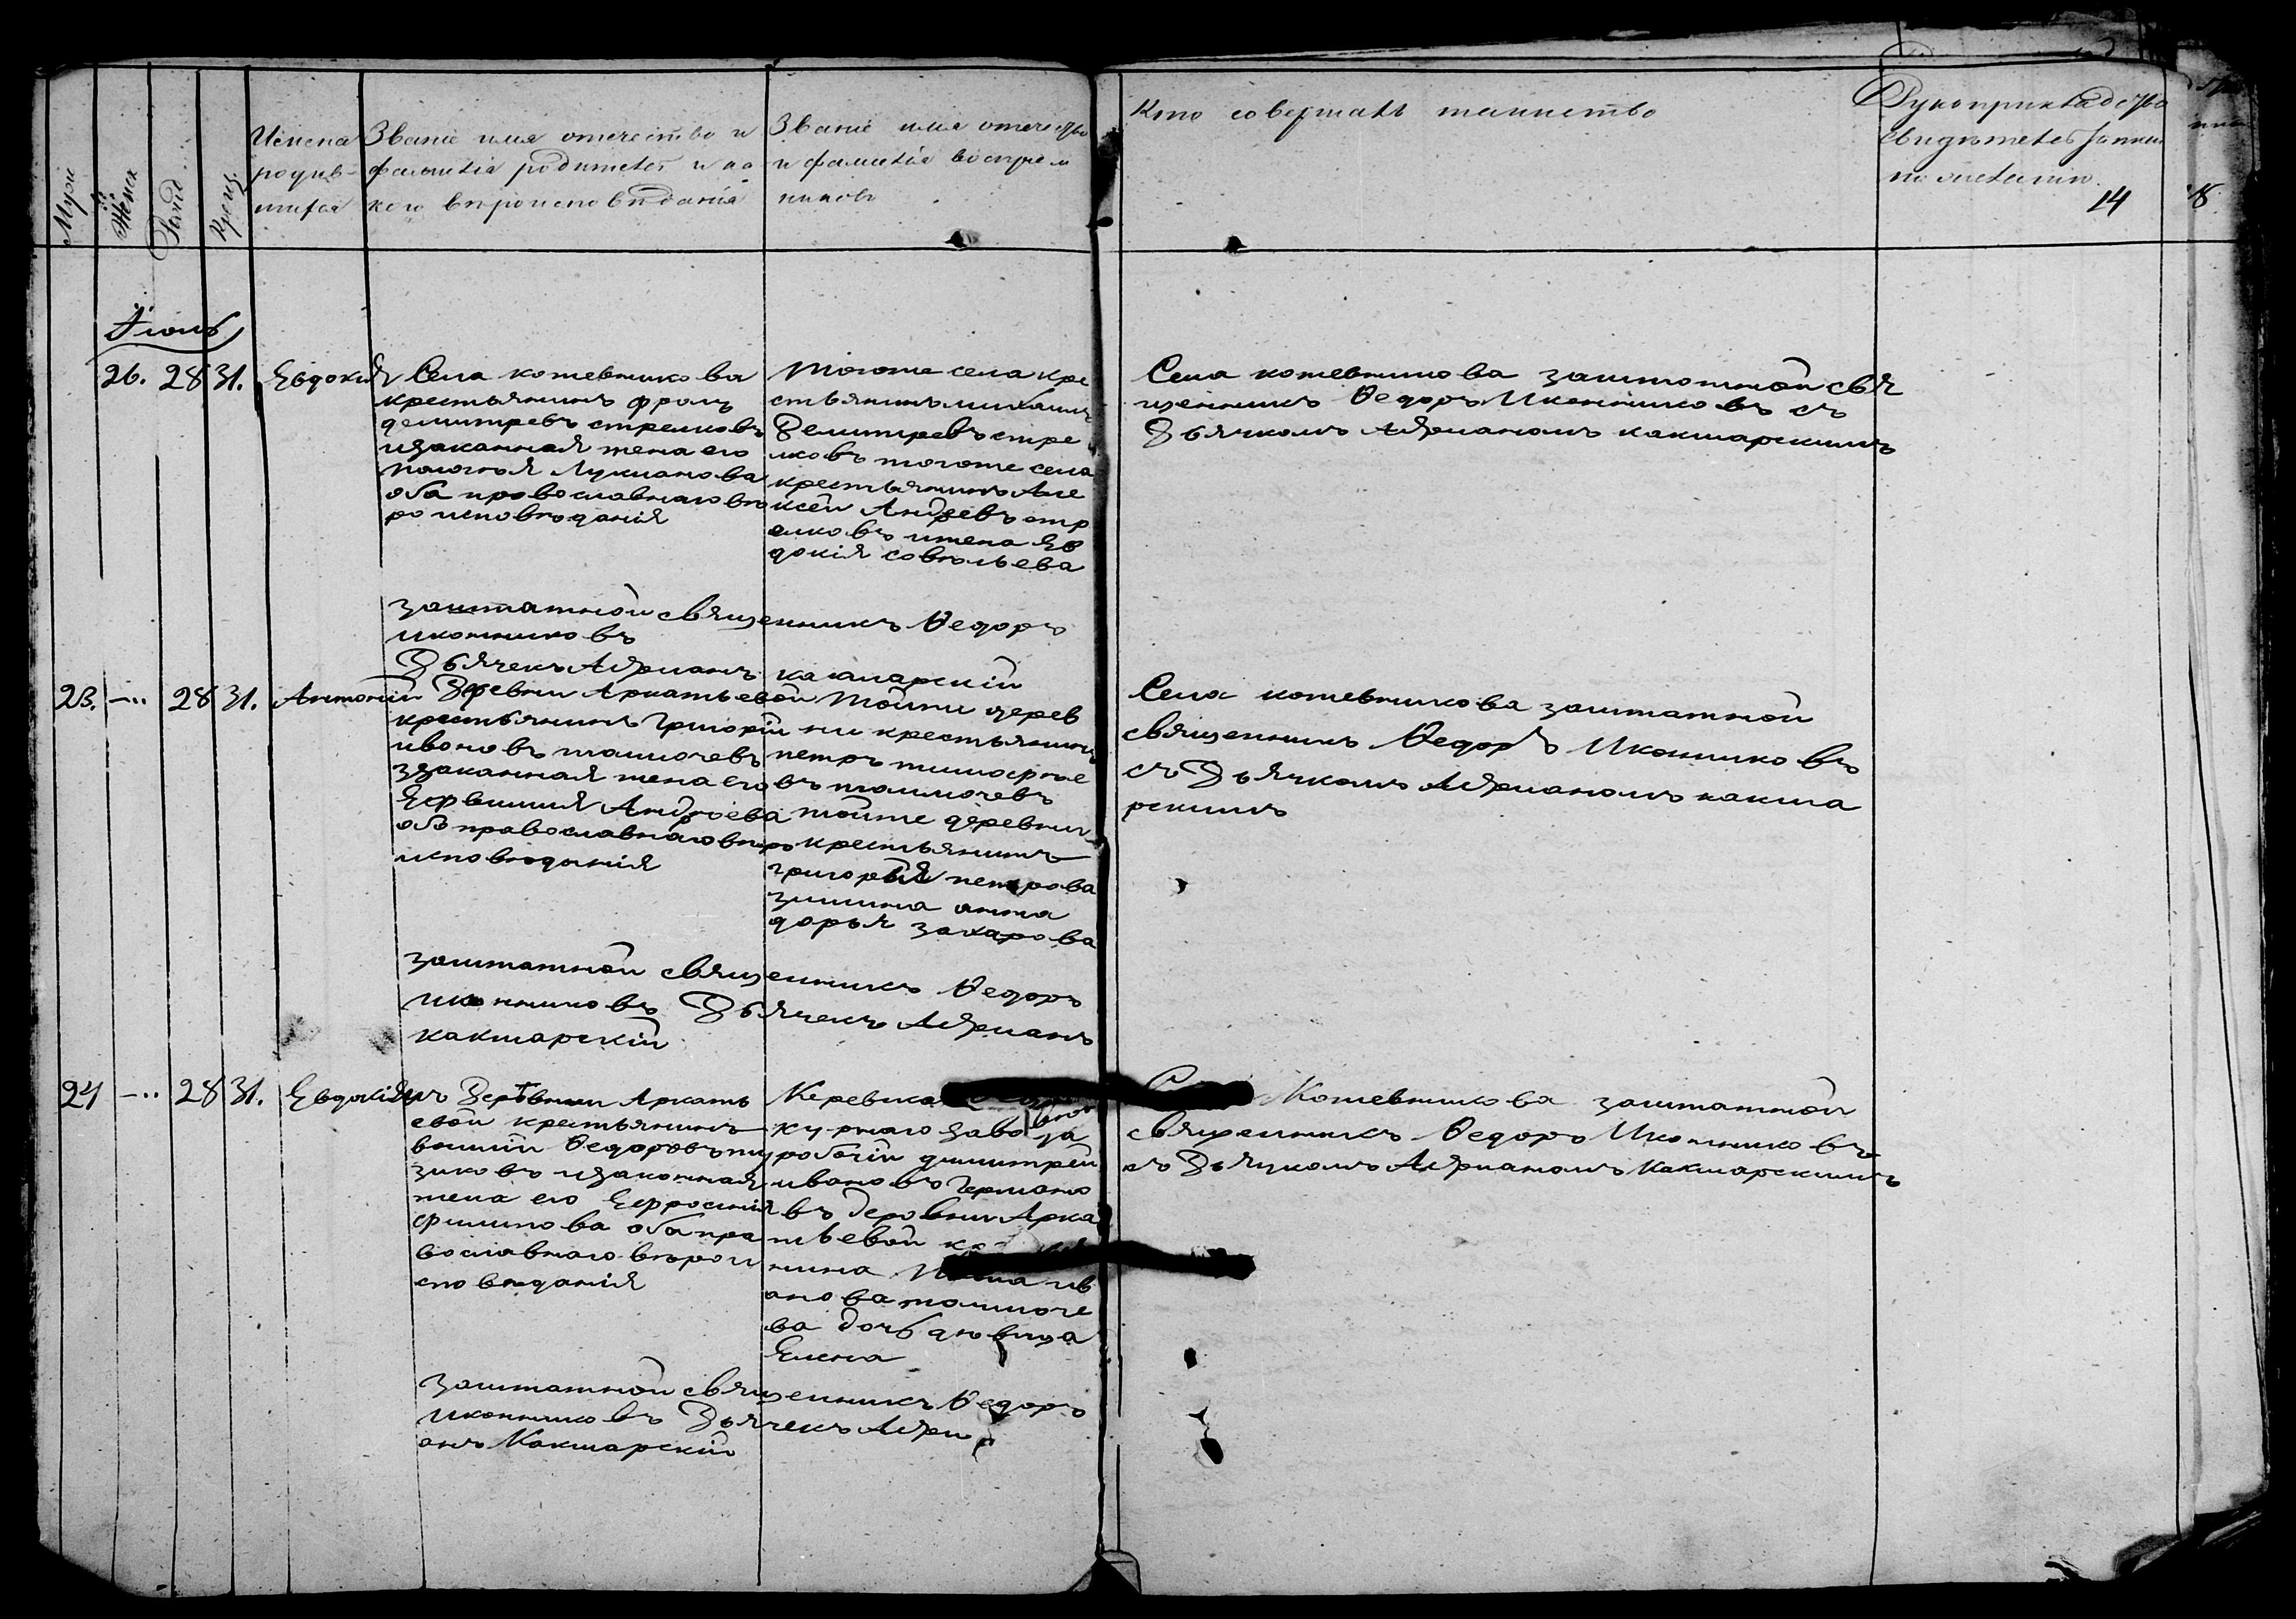 Муж
Женск
Рожд
Крещ
Имена
родив-
шихся
Званіе имя отечество и
фамилія родителей и ка
кого вѣроисповѣданія
Званіе имя отечество
и фамилія воспріем
никовъ
Кто совершалъ таинство
Рукоприкладство
свидѣтелей записи
по желанію
14
Іюль
26. 28 31. Евдокия
Села кожевникова
крестьянинъ фролъ
демитревъ стрелковъ
изаканная жена его
Пологея Лукианова
оба провославнаго вѣ
роисповѣданія
Тогоже села кре
стьянинъ михаилъ
Демитревъ стре
лковъ тогоже села
крестьянинъ Але
ксей Андревъ стр
елковъ ижена Ев
докія совѣльева
Села кожевникова заштотной свя
щенникъ Ѳедоръ Иконниковъ съ
Дьячкомъ Адрианомъ какшарскимъ
заштатной священникъ Ѳедоръ
иконниковъ
Дьячекъ Адрианъ какшарскій
23. -- 28 31. Антоній
Деревни Аркатьевой
крестьянинъ Григорій
ивановъ толмочевъ
изаканная жена его
Ефвимия Андрѣева
обо православнаго вѣро
исповѣданія
Тойжи дерев
ни крестьянинъ
петръ тимофѣе
въ толмочевъ
тойже деревни
крестьянинъ
григорья петрова
зимина жена
дарья захарова
Села кожевникова заштатной
священникъ Ѳедоръ Иконниковъ
съ Дьячкомъ Адрианомъ какша
рскимъ
заштатной священникъ Ѳедоръ
иконниковъ Дьячекъ Адрианъ
какшарскій
24 -- 28 31. Евдокимъ
Деревни Аркать
евой крестьянинъ
вкишй Ѳедоровъ пу
зиковъ изаконная
жена его Ефросинія
филипова оба пра
вославнаго вѣрои
сповѣданія
Керевска
курнаго завода
робочій димитрей
ивановъ Германо
въ деровни Арка
тьевой
нина ив
анова толмоче
ва дочь дѣвица
Елена
Кожевникова заштатной
священникъ Ѳедоръ Иконниковъ
съ Дьячкомъ Адрианомъ Какшарскимъ
заштатной священникъ Ѳедоръ
иконниковъ Дьячекъ Адри
анъ Какшарскій